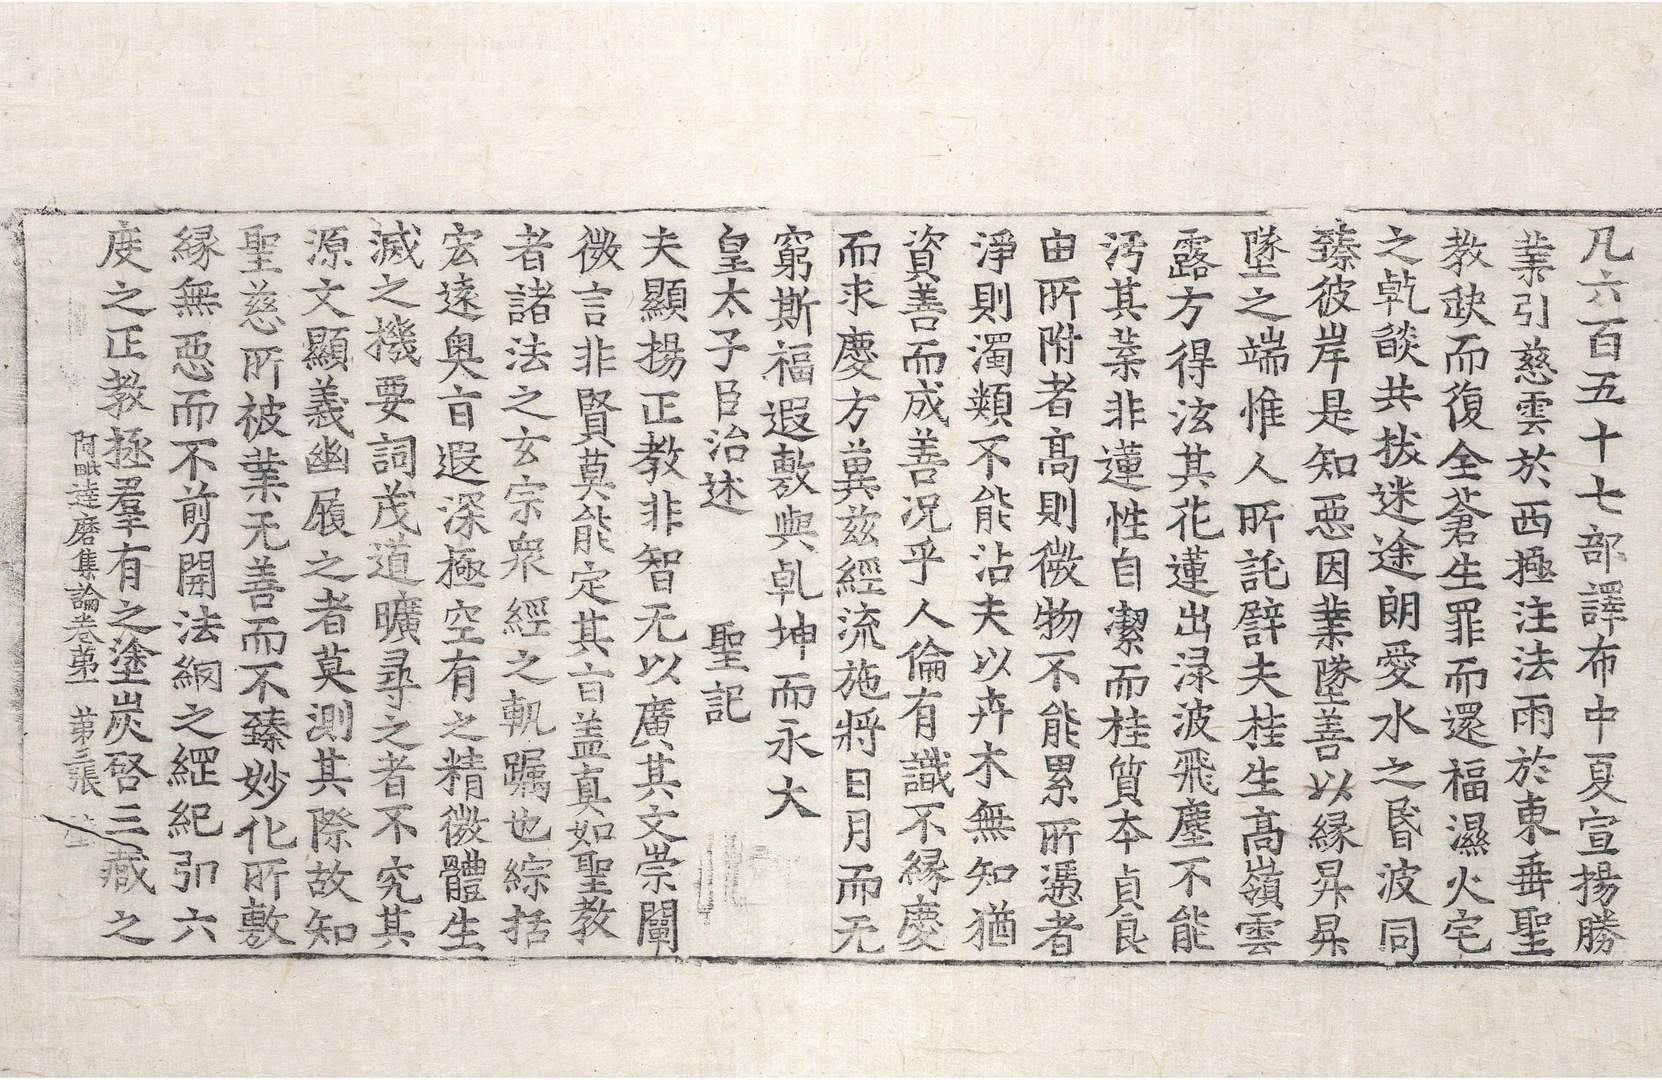 凡六百五十七部譯布中夏宣揚勝
業引慈雲於西極注法雨於東垂聖
教缺而復全蒼生罪而還福濕火宅
之乹燄共拔迷途朗愛水之昬波同
臻彼岸是知惡因業墜善以緣昇昇
墜之端惟人所託譬夫桂生高嶺雲
露方得泫其花蓮出淥波飛塵不能
汚其葉非蓮性自潔而桂質本貞良
由所附者高則微物不能累所憑者
淨則濁類不能沾夫以卉木無知猶
資善而成善況乎人倫有識不緣慶
而求慶方兾茲經流施將日月而无
窮斯福遐敷與乹坤而永大
皇太子臣治述 聖記
夫顯揚正教非智无以廣其文崇闡
微言非賢莫能定其旨盖真如聖教
者諸法之玄宗衆經之軌躅也綜括
宏遠奧旨遐深極空有之精微體生
滅之機要詞茂道曠尋之者不究其
源文顯義幽履之者莫測其際故知
聖慈所被業无善而不臻妙化所敷
緣無惡而不剪開法網之綱紀弘六
度之正教拯羣有之塗炭啓三藏之
阿毗達磨集論卷苐一 苐三張